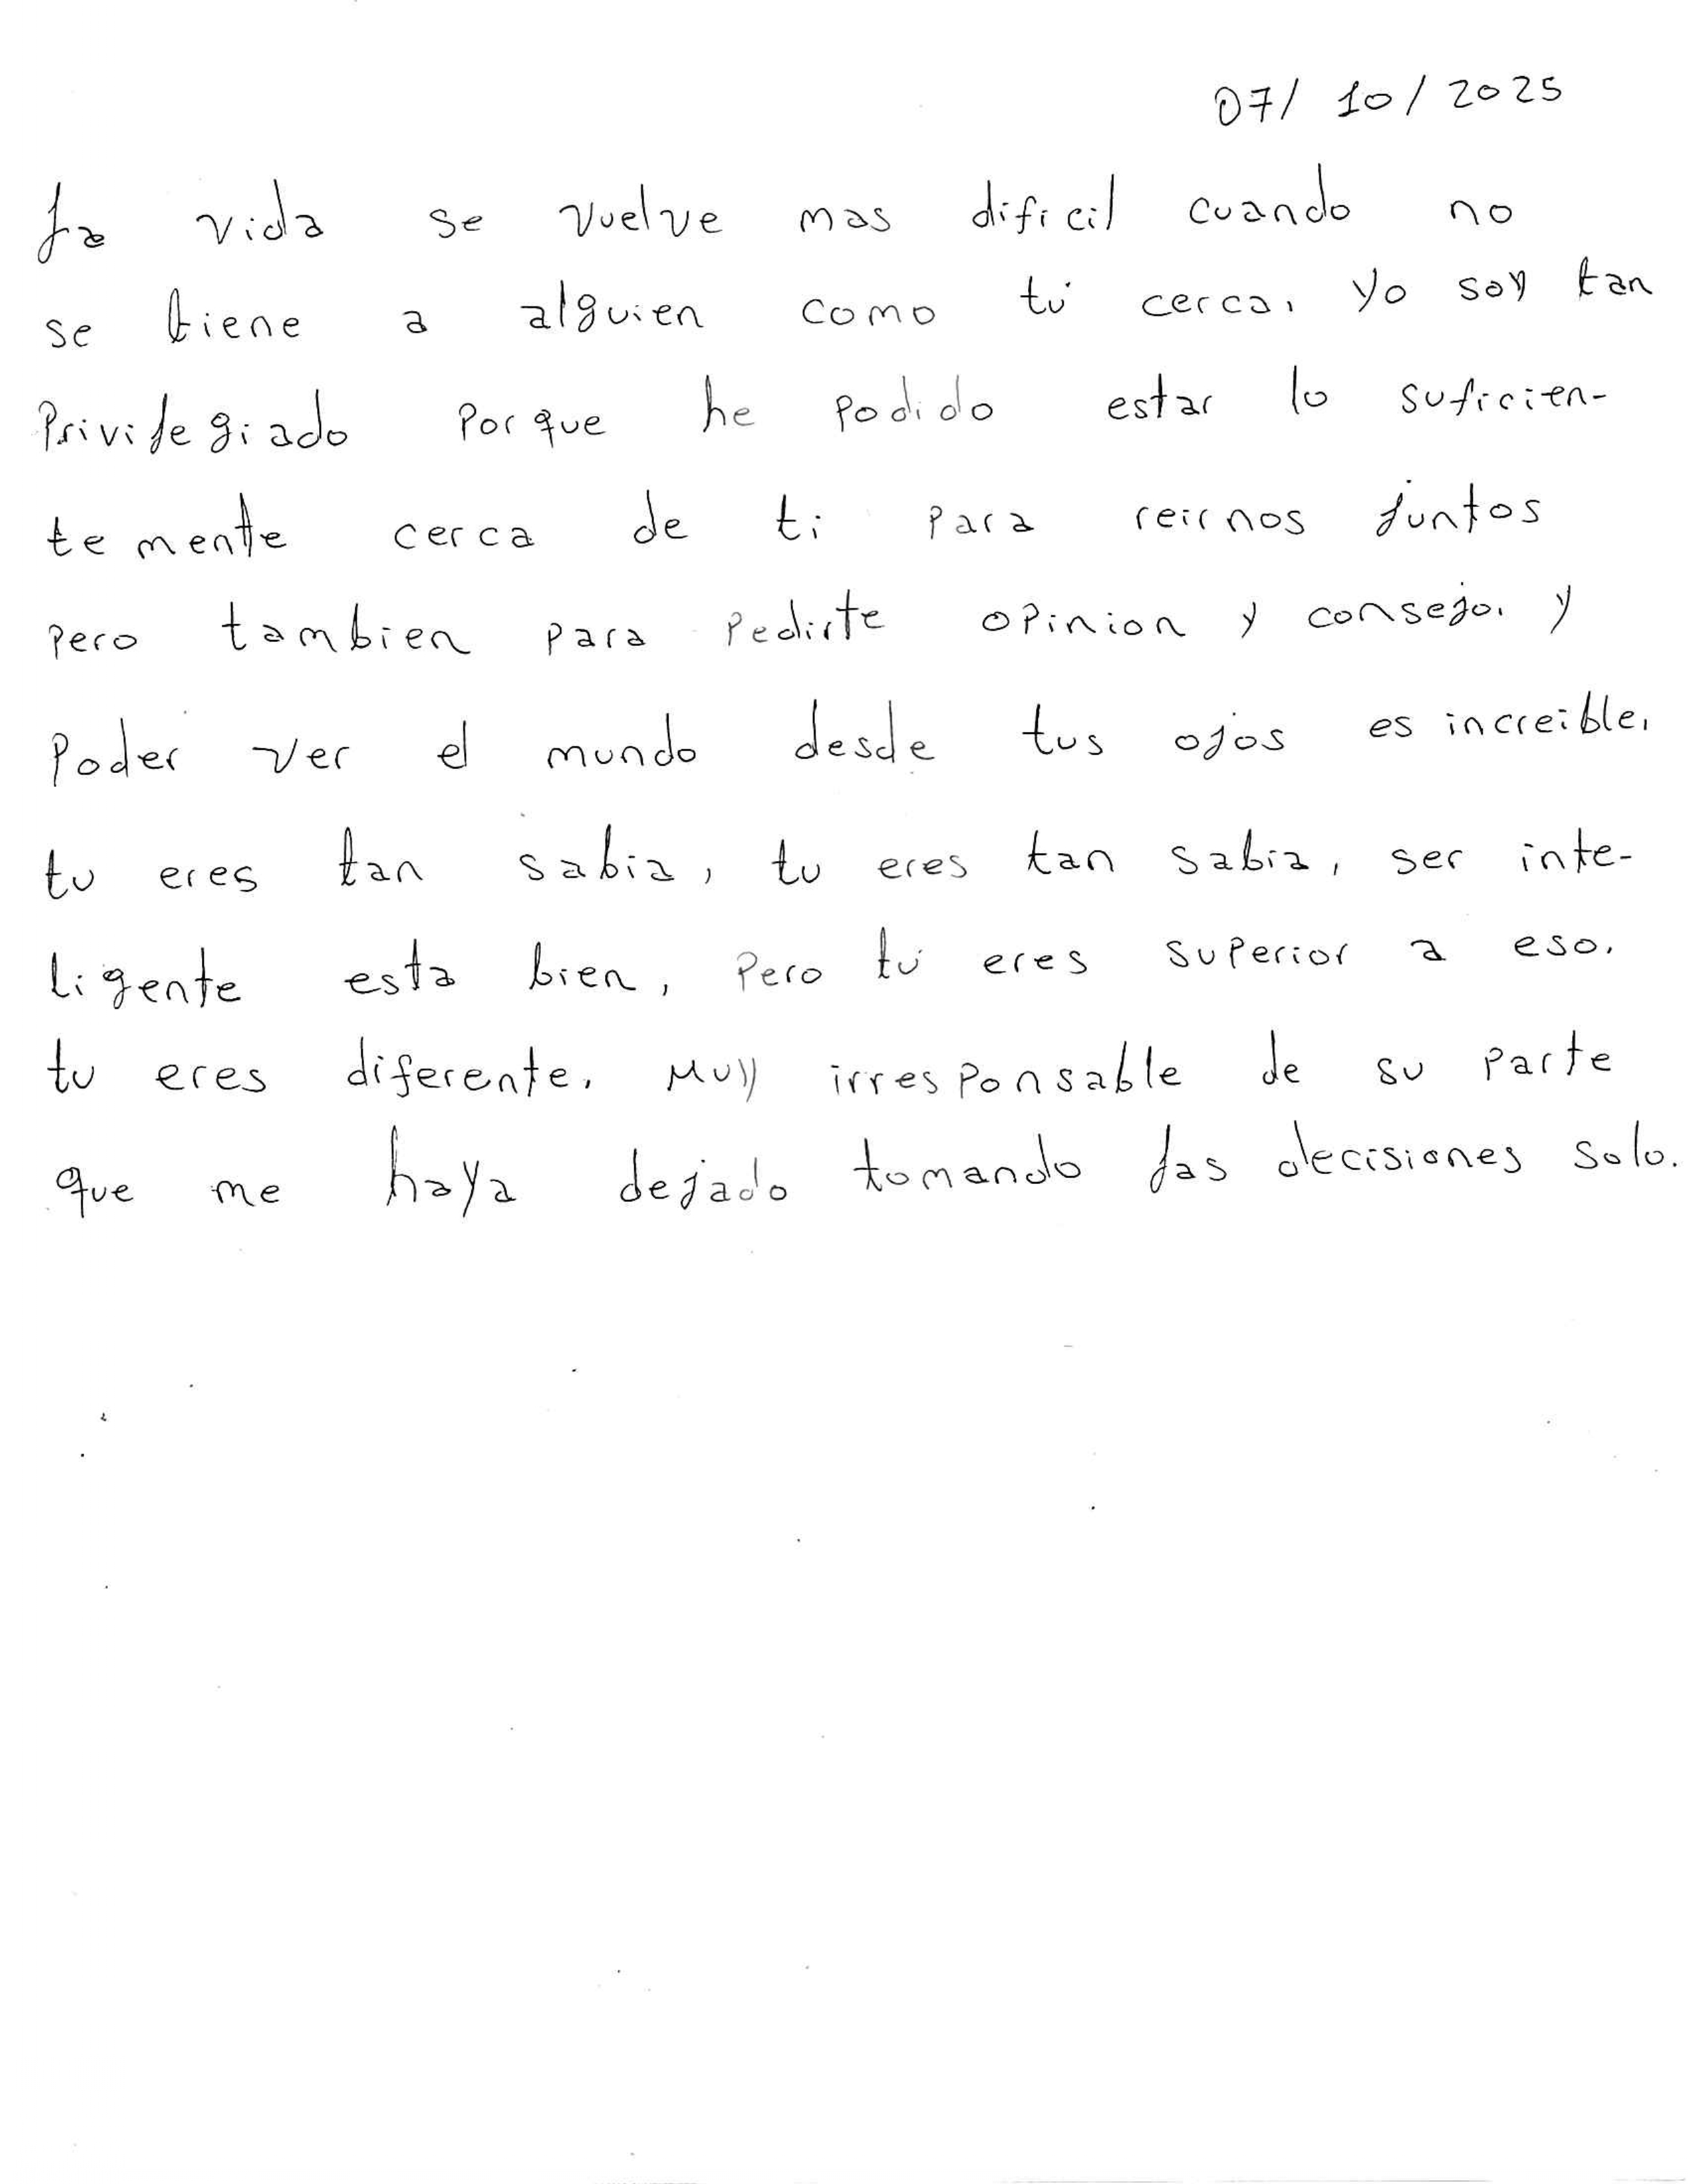 07/ 10/ 2025
La vida se vuelve mas dificil cuando no
se tiene a alguien como tú cerca. Yo soy tan
Privilegiado Porque he Podido estar lo suficien-
temente cerca de ti para reirnos juntos
pero tambien para Pedirte opinion y consejo. y
Poder ver el mundo desde tus ojos es increible.
tu eres tan sabia, tu eres tan sabia, ser inte-
ligente esta bien, Pero tú eres superior a eso.
tu eres diferente. Muy irresponsable de su parte
que me haya dejado tomando las decisiones solo.